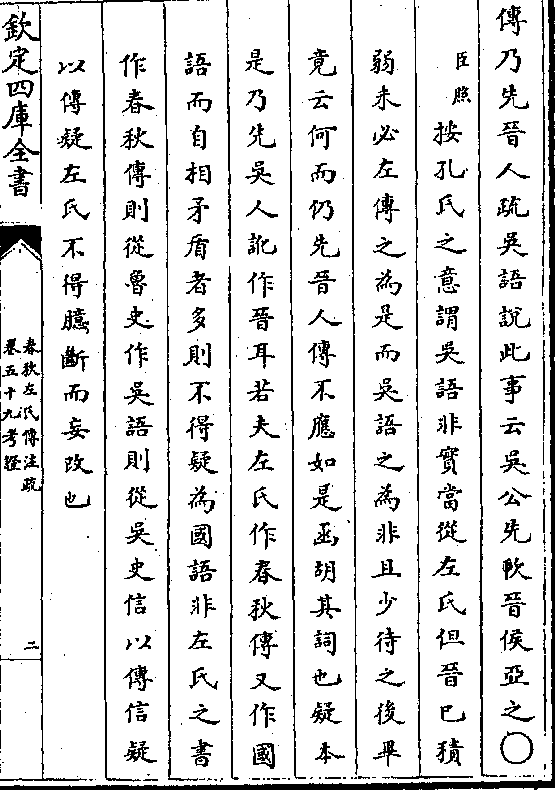 傳乃先晉人疏吳語說此事云吳公先歃晉侯亞之〇
臣照按孔氏之意謂吳語非實當從左氏但晉已積
弱未必左傳之為是而吳語之為非且少待之後畢
竟云何而仍先晉人傳不應如是函胡其詞也疑本
是乃先吳人訛作晉耳若夫左氏作春秋傳又作國
語而自相矛盾者多則不得疑為國語非左氏之書
作春秋傳則從魯史作吳語則從吳史信以傳信疑
以傳疑左氏不得臆斷而妄改也
欽定四庫全書
春秋左氏傳注疏
卷五十九考證
二